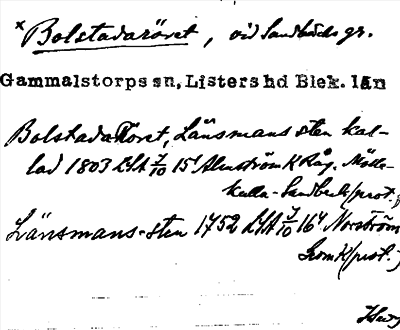 × Bolstadaröret, vid Sandbäcks gr.
Gammalstorps sn, Listers hd Blek. län
Bolstadaröret, Länsmans sten kal-
lad 1803 LSA 7/10 15¹ Almström K Råg. Mölle-
kulla - Sandbeck (prot.)
Länsmans-sten 1752 LSA 7/10 16⁴ Norström
K (prot.)